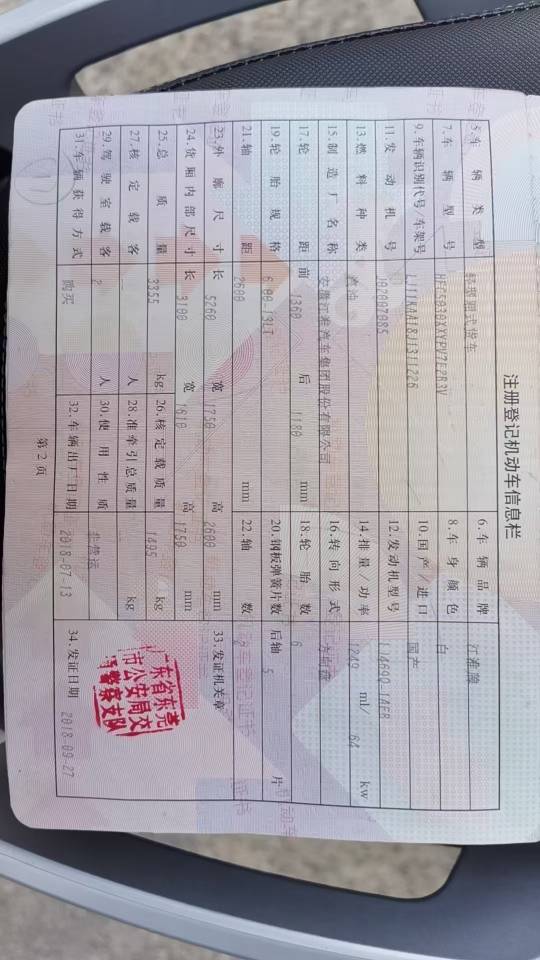 注册登记机动车信息栏
5.车辆类型 轻型厢式货车 6.车辆品牌 江淮牌
7.车辆型号 HFC5030XXYPV7E2B3V 8.车身颜色 白
9.车辆识别代号/车架号 10.国产/进口 国产
11.发动机号 J02007085 12.发动机型号
13.燃料种类 汽油 14.排量/功率 1249 ml/ 64 kw
15.制造厂名称 安徽江淮汽车集团股份有限公司 16.转向形式 方向盘
17.轮距 前 1360 后 1180 mm 18.轮胎数 6
19.轮胎规格 6.00-13LT 20.钢板弹簧片数 后轴 5 片
21.轴距 2600 mm 22.轴数 2
23.外廓尺寸 长 5260 宽 1750 高 2600 mm 33.发证机关章
24.货厢内部尺寸 长 3100 宽 1610 高 1750 mm
25.总质量 3355 kg 26.核定载质量 1495 kg
27.核定载客 人 28.准牵引总质量 kg
29.驾驶室载客 2 人 30.使用性质 非营运
31.车辆获得方式 购买 32.车辆出厂日期 2018-07-13 34.发证日期 2018-09-27
广东省东莞
市公安局交
通警察支队
第2页